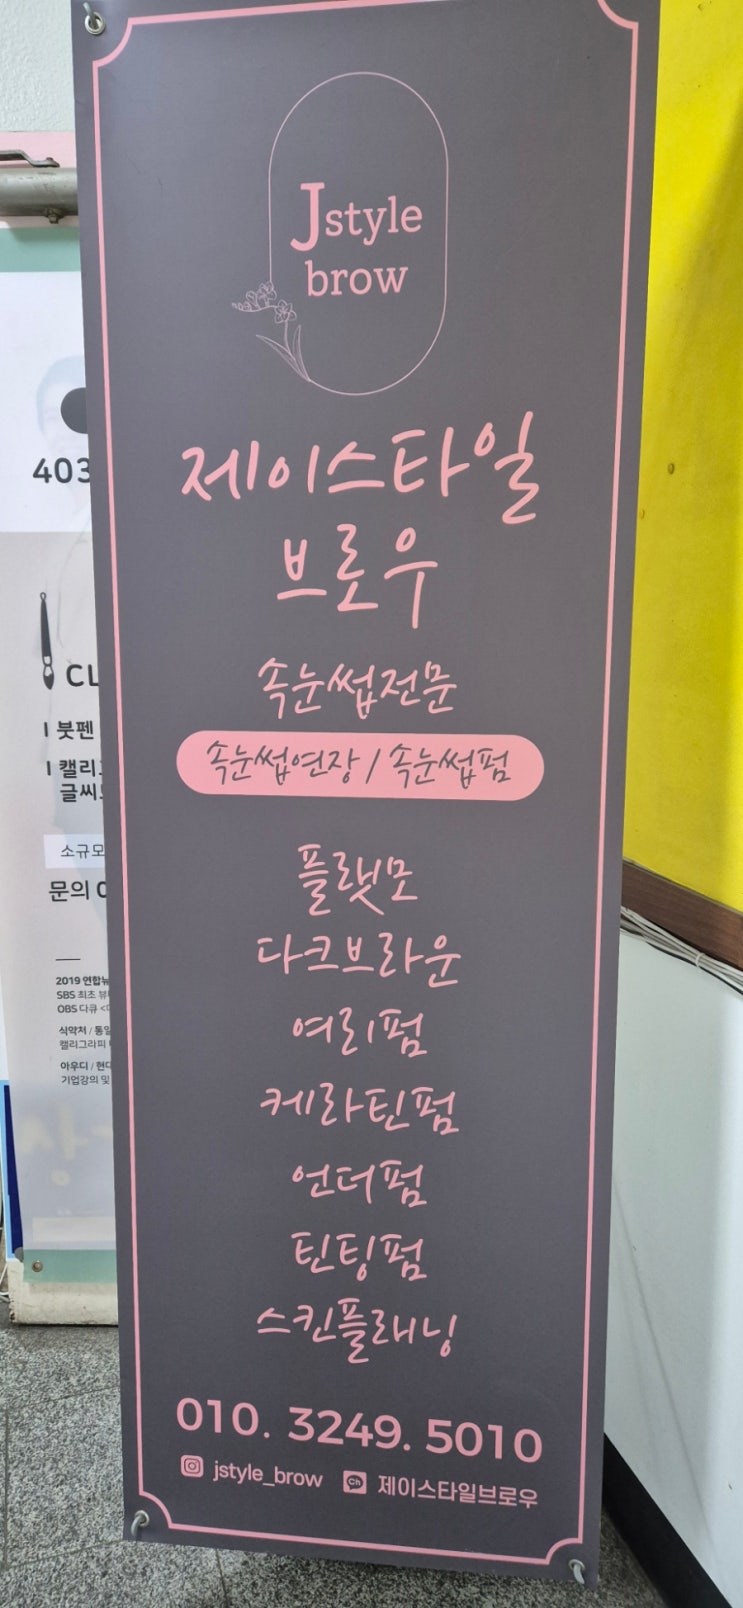 Jstyle
brow
제이스타일
브로우
속눈썹전문
속눈썹연장 / 속눈썹펌
플랫모
다크브라운
여리펌
케라틴펌
언더펌
틴팅펌
스킨플래닝
010. 3249. 5010
jstyle_brow Ch 제이스타일브로우
403
CL
붓펜
캘리
글씨
소규모
문의 0
2019 연합뉴
SBS 최초 뷰
OBS 다큐
식약처 / 통일
캘리그라피
아우디 / 현대
기업강의 및